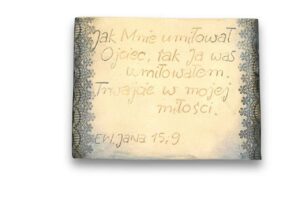 Jak Mnie umiłował
Ojciec, tak Ja was
umiłowałem.
Trwajcie w mojej
miłości.
Ew. Jana 15,9